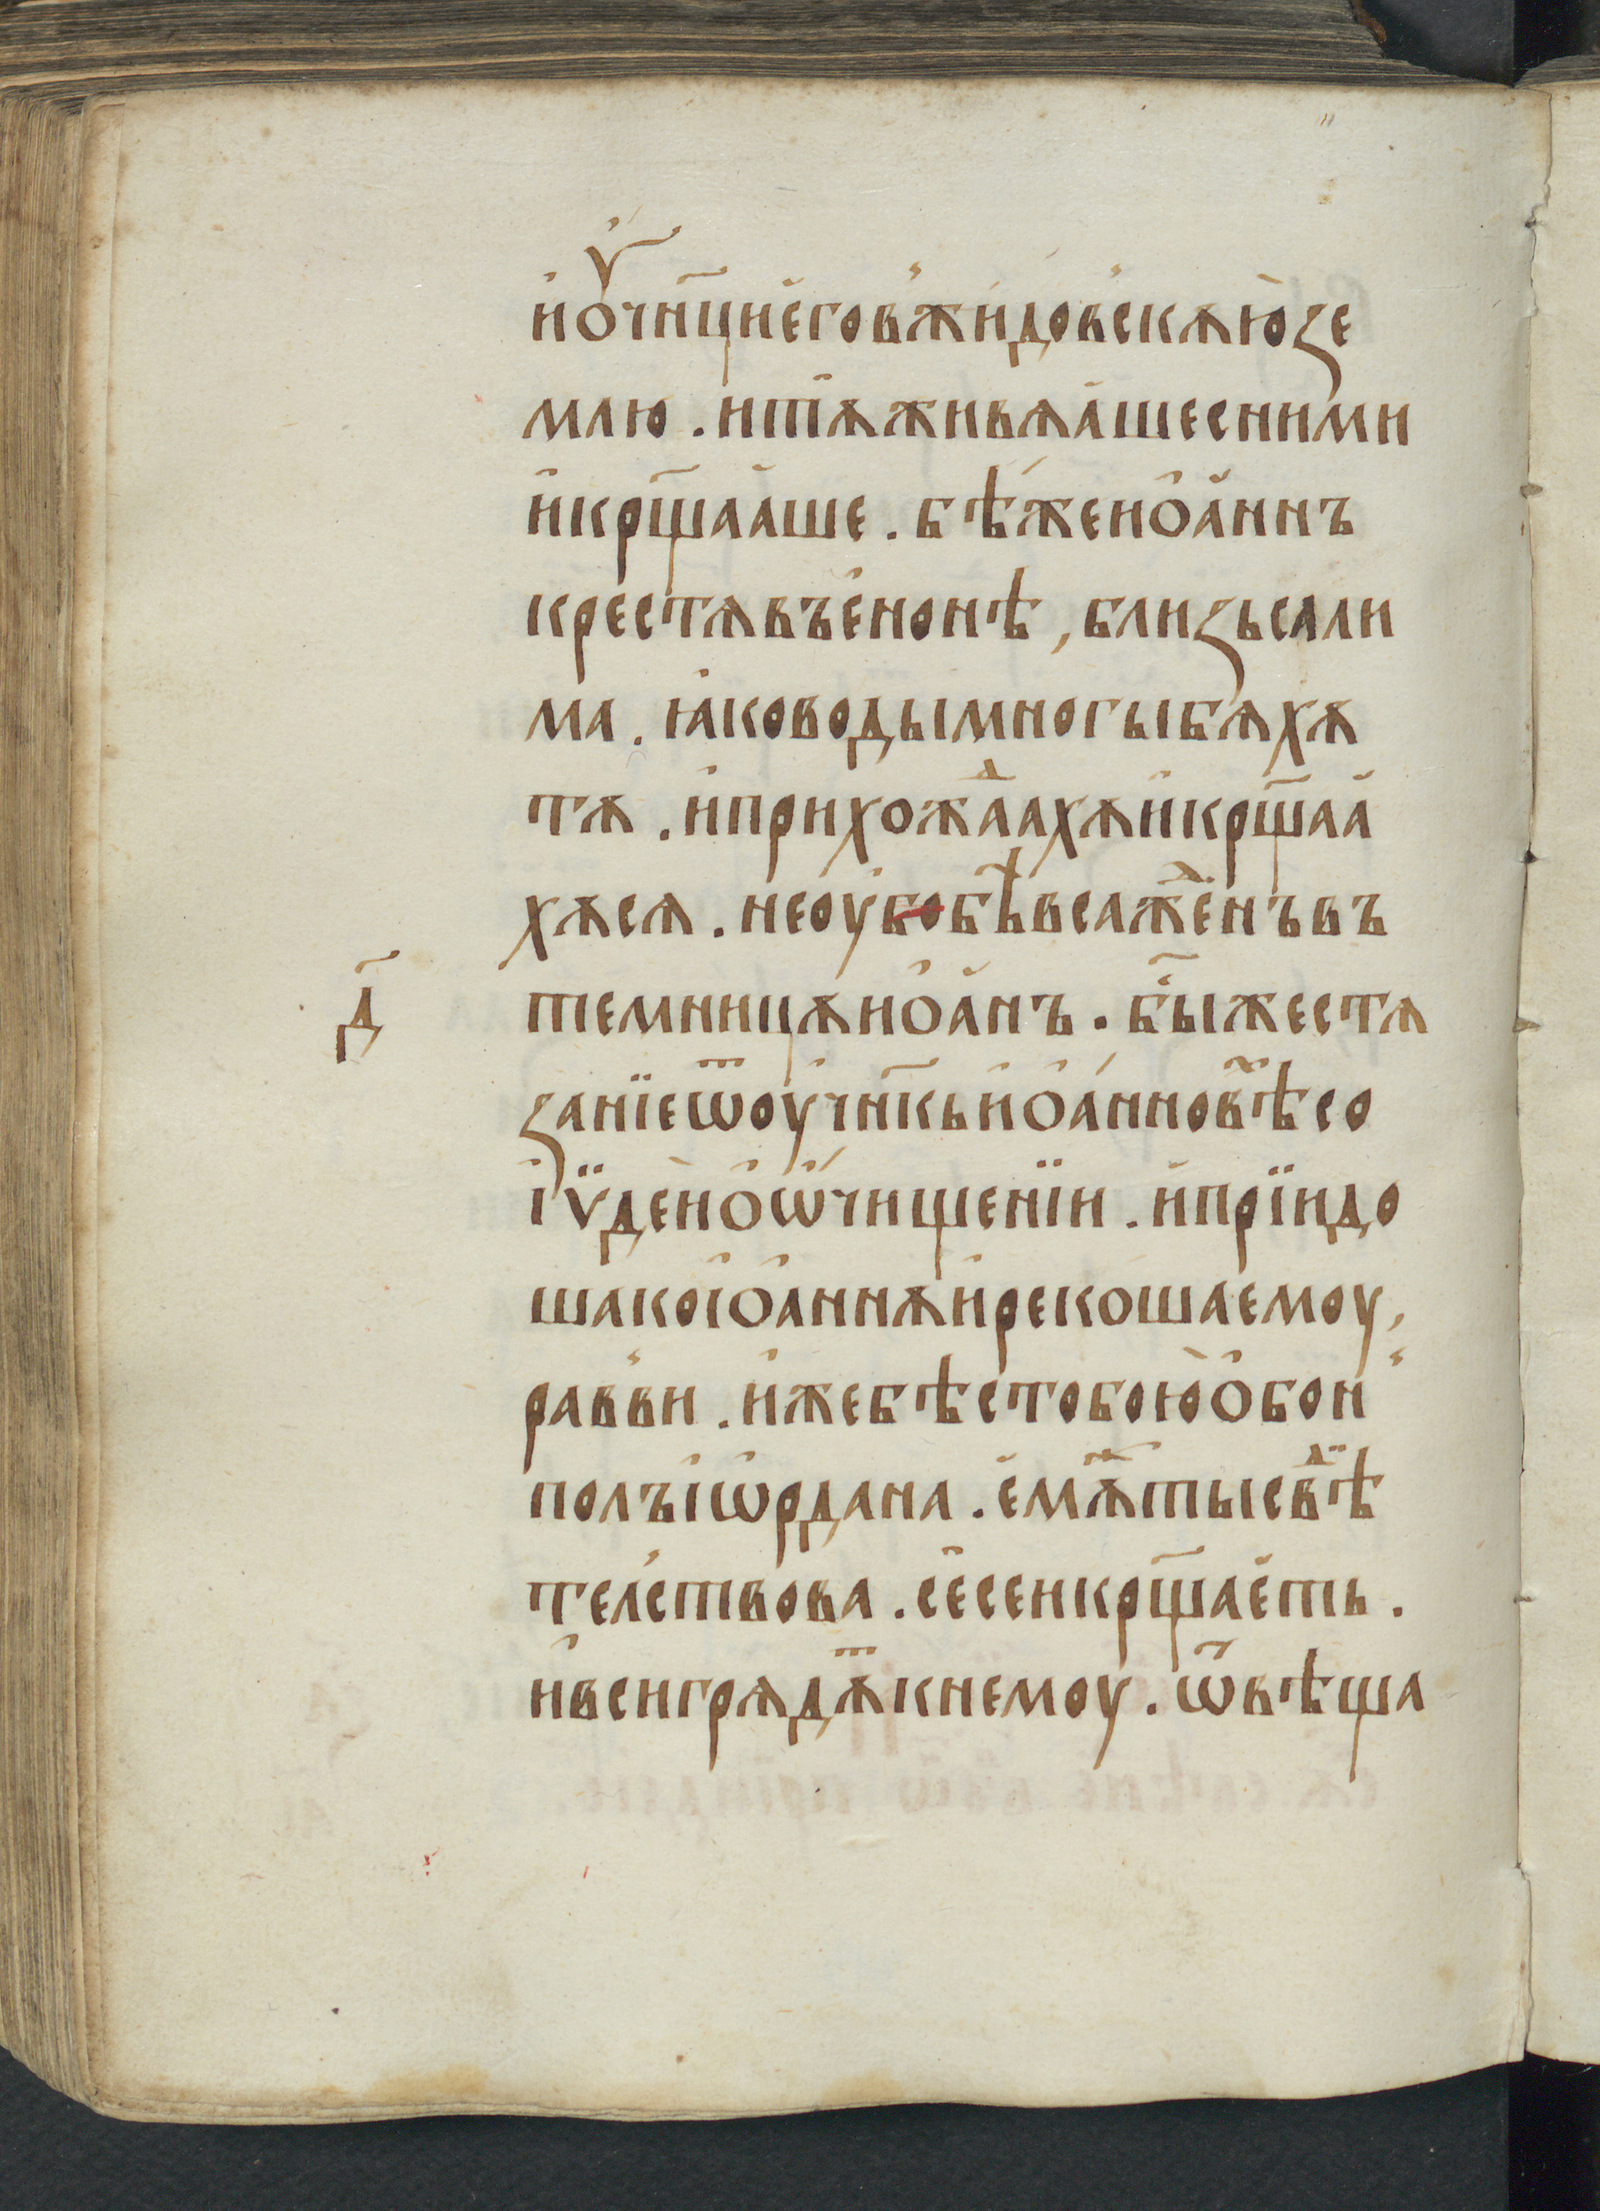 и҆оу҆чн҃цие҆гов̾жи́дов̾скѧю҆зе
млю . итѹ̑ѫживѧа҆шесними
и҆кр҃щаа҆ше . бѣ́жеио҆а҆ннъ
крестѧвъе҆нонѣ , близьсали
ма . ꙗ҆ководымногыбѧхѫ
тѫ . и҆прихожⷣаахѫи҆кр҃щаа҆
хѫсѧ . неоу҆бобѣ́всажⷣе҆нъвъ
д҃
темницѫио҆а҆нъ . бы҃жестѧ
заніеѿоу҆чн҃кьи҆о҆а́нновⷯѣсо
іѵ̈де́ио҆ѡ҆́чищеніи . и҆пріидо
шакоі҆о҆а҆ннѫи҆рекошаемоу ,
рав̾ви . и҆жебѣстобою҆о҆бон̾
полъі҆ѡ҆рдана . е҆мѫⷤтысвⷣѣ
тел̾ствова . се҆сеикр҃щае҆ть .
и҆всигрѧдѫⷮкне҆моу . ѿвѣща